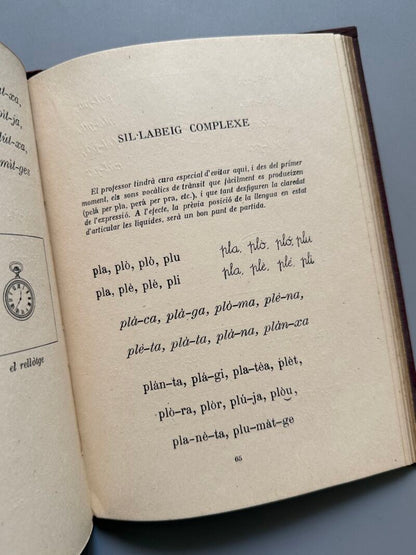 ut–xa,
òt–ja,
lút–xa,
màt–ges
el rellòtge
SIL·LABEIG COMPLEXE
El professor tindrà cura especial d'evitar aquí, i des del primer
moment, els sons vocàlics de trànsit que fàcilment es produeixen
(pelà per pla, perà per pra, etc.), i que tant desfiguren la claredat
de l'expressió. A l'efecte, la prèvia posició de la llengua en estat
d'articular les líquides, serà un bon punt de partida.
pla, plò, plô, plu
pla, plè, plê, pli
pla, plò, pló, plu
pla, plè, plé, pli
plà–ca, plà–ga, plò–ma, plé–na,
plé–ta, plà–ta, plà–na, plàn–xa
plàn–ta, plá–gi, pla–tèa, plèt,
plò–ra, plòr, plú–ja, plòu,
pla–nè–ta, plu–màt–ge
65